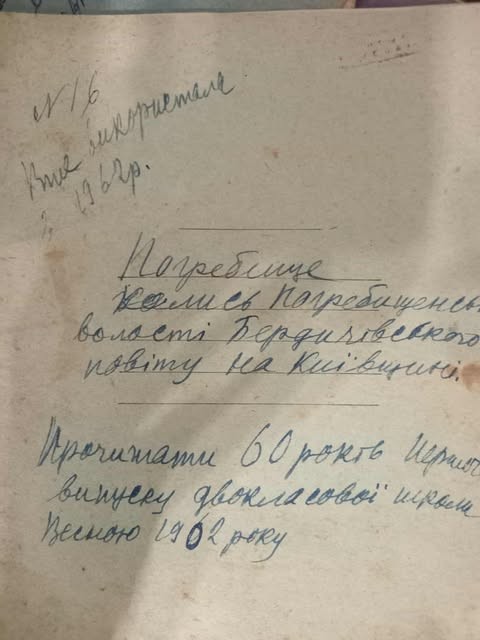 N 16
Вже використала
1962 р.
Погребище
колись Погребищенсь
волості Бердичівського
повіту на Київщині.
Прочитати 60 років Першог
випуску двокласової школи
Весною 1902 року